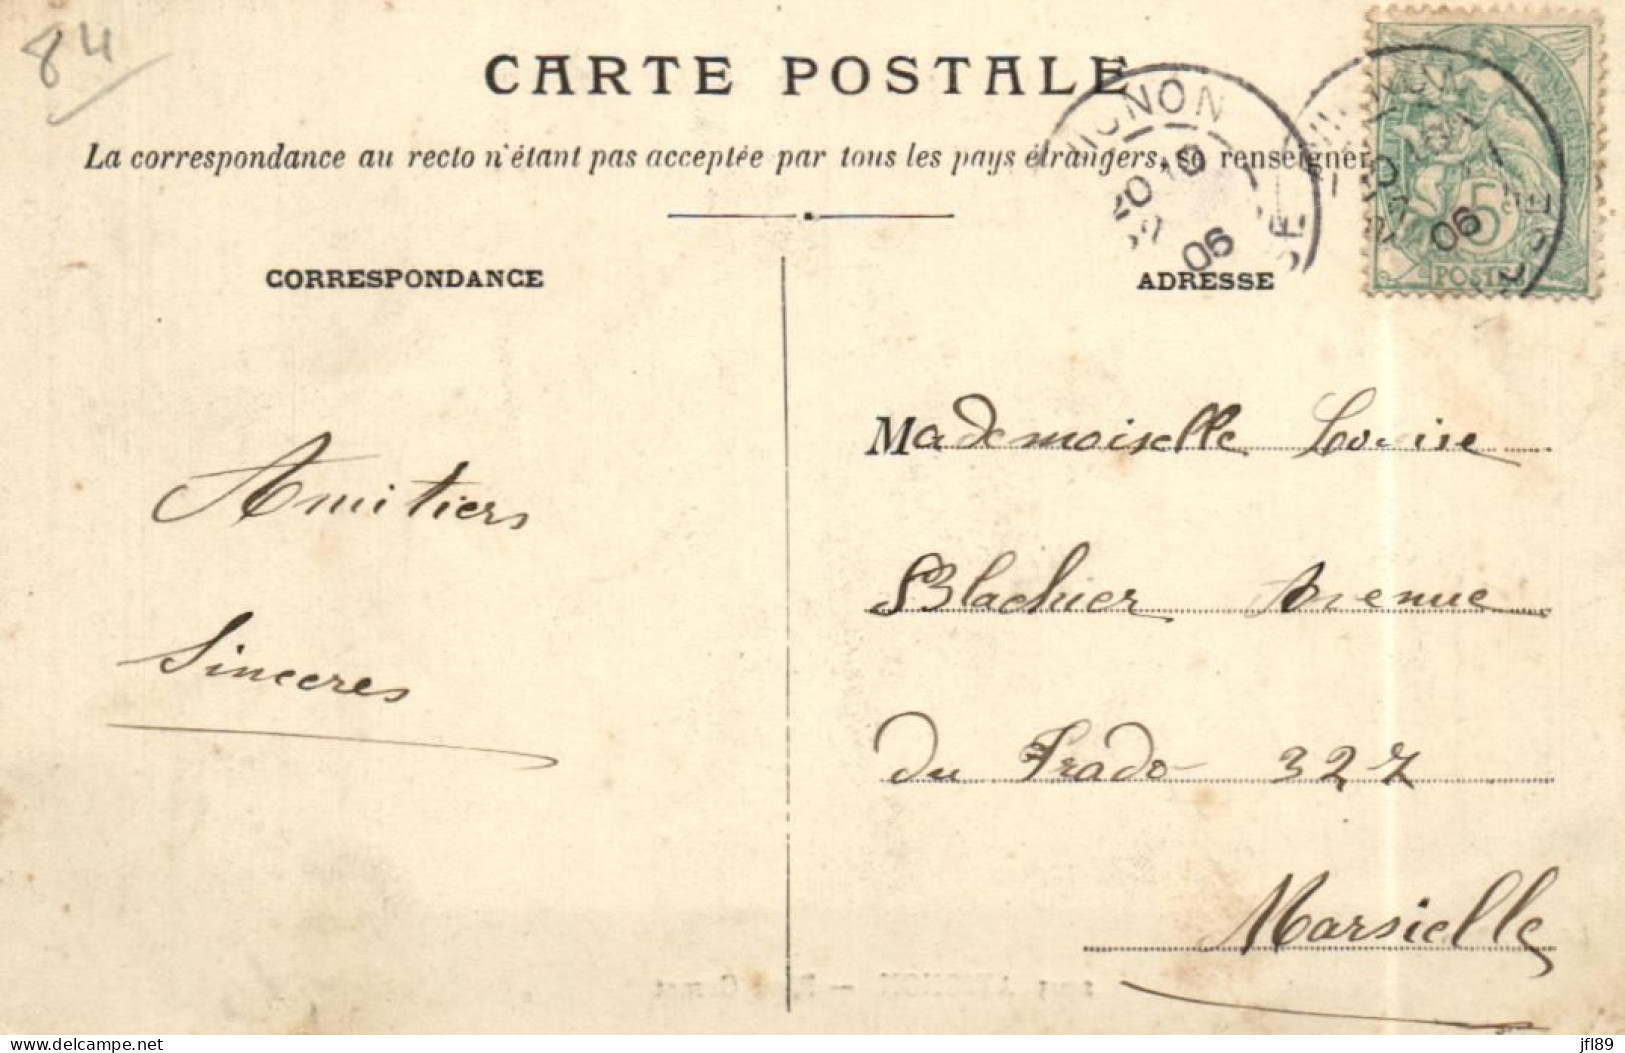 84
CARTE POSTALE
La correspondance au recto n'étant pas acceptée par tous les pays étrangers, se renseigner
CORRESPONDANCE
ADRESSE
5c
POSTES
06
06
Amitiers
Sinceres
Mademoiselle Louise
Blachier Avenue
du Prado 327
Marsielle
www.delcampe.net
jfl89